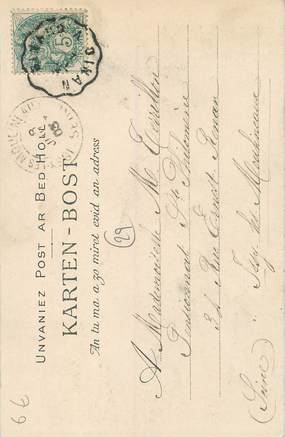 UNVANIEZ POST AR BED-HOLL
KARTEN-BOST
An tu ma a zo miret evid an adress
29
A Mademoiselle M.
Pensionnat Ste Philomène
34 Rue Ernest Renan
Issy les Moulineaux
(Seine)
66
5
DINAN